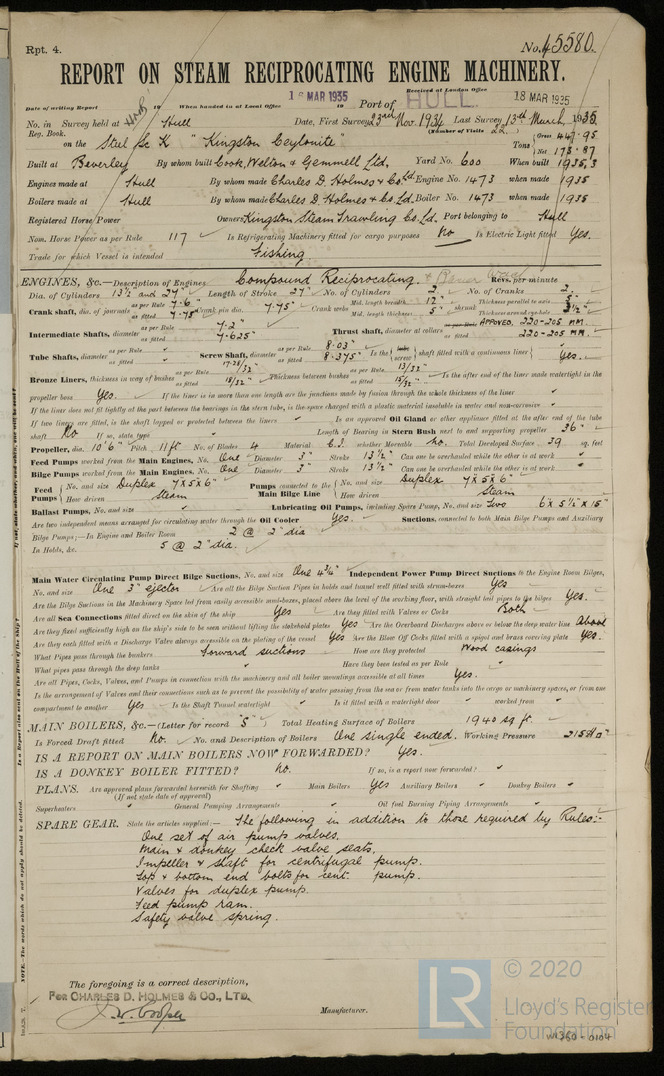 Rpt. 4. No. 45580.
REPORT ON STEAM RECIPROCATING ENGINE MACHINERY.
Received at London Office
18 MAR 1935
Date of writing Report 19 When handed in at Local Office 16 MAR 1935 Port of HULL.
No. in Survey held at Hull Date, First Survey 23rd Nov. 1934 Last Survey 13th March, 1935
Reg. Book. (Number of Visits 22.)
on the Steel Sc K "Kingston Ceylonite" Tons Gross 447.95
Net 173.87
Built at Beverley By whom built Cook, Welton & Gemmell Ltd, Yard No. 600 When built 1935,3
Engines made at Hull By whom made Charles D. Holmes & Co. Ltd. Engine No. 1473 when made 1935
Boilers made at Hull By whom made Charles D. Holmes & Co. Ltd. Boiler No. 1473 when made 1935
Registered Horse Power Owners Kingston Steam Trawling Co. Ltd. Port belonging to Hull
Nom. Horse Power as per Rule 117 Is Refrigerating Machinery fitted for cargo purposes No Is Electric Light fitted Yes.
Trade for which Vessel is intended Fishing
ENGINES, &c.—Description of Engines Compound Reciprocating Revs. per minute
Dia. of Cylinders 13½ and 27" Length of Stroke 27" No. of Cylinders 2 No. of Cranks 2
Crank shaft, dia. of journals as per Rule 7.6" as fitted 7.75" Crank pin dia. 7.75" Crank webs Mid. length breadth 12" Mid. length thickness 5" shrunk Thickness parallel to axis 5" Thickness around eye hole 3½"
Intermediate Shafts, diameter as per Rule 7.2" as fitted 7.625" Thrust shaft, diameter at collars as per Rule APPROVED. 220-205 MM. as fitted 220-205 MM.
Tube Shafts, diameter as per Rule as fitted Screw Shaft, diameter as per Rule 8.03" as fitted 8.375" Is the tube screw shaft fitted with a continuous liner Yes.
Bronze Liners, thickness in way of bushes as per Rule as fitted 18/32" Thickness between bushes as per Rule 13/32" as fitted 15/32" Is the after end of the liner made watertight in the
propeller boss Yes. If the liner is in more than one length are the junctions made by fusion through the whole thickness of the liner
If the liner does not fit tightly at the part between the bearings in the stern tube, is the space charged with a plastic material insoluble in water and non-corrosive
If two liners are fitted, is the shaft lapped or protected between the liners Is an approved Oil Gland or other appliance fitted at the after end of the tube
shaft No If so, state type Length of Bearing in Stern Bush next to and supporting propeller 36"
Propeller, dia. 10'6" Pitch 11ft No. of Blades 4 Material C.I. whether Moveable No. Total Developed Surface 39 sq. feet
Feed Pumps worked from the Main Engines, No. One Diameter 3" Stroke 13½" Can one be overhauled while the other is at work
Bilge Pumps worked from the Main Engines, No. One Diameter 3" Stroke 13½" Can one be overhauled while the other is at work
Feed Pumps No. and size Duplex 7"x5"x6" Pumps connected to the Main Bilge Line No. and size Duplex 7"x5"x6"
How driven Steam How driven Steam
Ballast Pumps, No. and size Lubricating Oil Pumps, including Spare Pump, No. and size Two 6"x5½"x15"
Are two independent means arranged for circulating water through the Oil Cooler Yes. Suctions, connected to both Main Bilge Pumps and Auxiliary
Bilge Pumps;—In Engine and Boiler Room 2 @ 2" dia
In Holds, &c. 5 @ 2" dia.
Main Water Circulating Pump Direct Bilge Suctions, No. and size One 4¾" Independent Power Pump Direct Suctions to the Engine Room Bilges,
No. and size One 3" ejector Are all the Bilge Suction Pipes in holds and tunnel well fitted with strum-boxes Yes
Are the Bilge Suctions in the Machinery Space led from easily accessible mud-boxes, placed above the level of the working floor, with straight tail pipes to the bilges Yes.
Are all Sea Connections fitted direct on the skin of the ship Yes Are they fitted with Valves or Cocks Both
Are they fixed sufficiently high on the ship's side to be seen without lifting the stokehold plates Yes Are the Overboard Discharges above or below the deep water line Above
Are they each fitted with a Discharge Valve always accessible on the plating of the vessel Yes Are the Blow Off Cocks fitted with a spigot and brass covering plate Yes.
What Pipes pass through the bunkers Forward suctions How are they protected Wood casings
What pipes pass through the deep tanks Have they been tested as per Rule
Are all Pipes, Cocks, Valves, and Pumps in connection with the machinery and all boiler mountings accessible at all times Yes.
Is the arrangement of Valves and their connections such as to prevent the possibility of water passing from the sea or from water tanks into the cargo or machinery spaces, or from one
compartment to another Yes Is the Shaft Tunnel watertight Is it fitted with a watertight door worked from
MAIN BOILERS, &c.—(Letter for record "S") Total Heating Surface of Boilers 1940 sq ft.
Is Forced Draft fitted No. No. and Description of Boilers One single ended. Working Pressure 215
IS A REPORT ON MAIN BOILERS NOW FORWARDED? Yes.
IS A DONKEY BOILER FITTED? No. If so, is a report now forwarded?
PLANS. Are approved plans forwarded herewith for Shafting Main Boilers Yes Auxiliary Boilers Donkey Boilers
(If not state date of approval)
Superheaters General Pumping Arrangements Oil fuel Burning Piping Arrangements
SPARE GEAR. State the articles supplied:— The following in addition to those required by Rules:-
One set of air pump valves.
Main & donkey check valve seats.
Impeller & shaft for centrifugal pump.
Top & bottom end bolts for cent. pump.
Valves for duplex pump.
Feed pump ram.
Safety valve spring.
The foregoing is a correct description,
For CHARLES D. HOLMES & CO., LTD.
Manufacturer.
NOTE.—The words which do not apply should be deleted.
LR
© 2020
Lloyd's Register
Foundation
W1360-0104